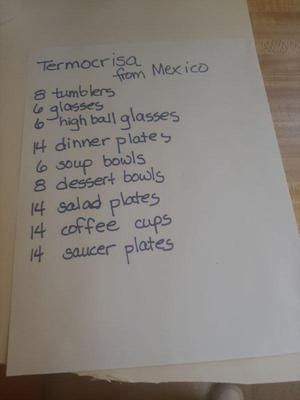 Termocrisa
from Mexico
8 tumblers
6 glasses
6 high ball glasses
14 dinner plates
6 soup bowls
8 dessert bowls
14 salad plates
14 coffee cups
14 saucer plates